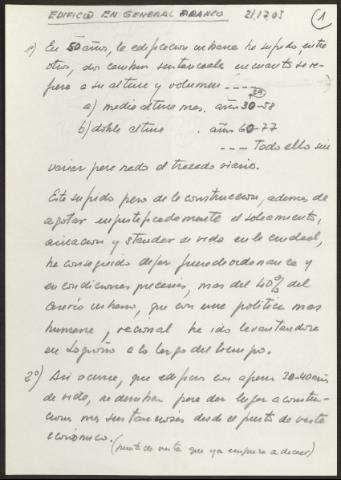 EDIFICIO EN GENERAL FRANCO 21.12.03 (1)
1º) En 50 años, la edificacion urbana ha sufrido, entre
otros, dos cambios sustanciales en cuanto se re-
fiere a su altura y volumen - - - -
a) media altura mas. años 30-58
b) doble altura . años 60-77
- - - Todo ello sin
variar para nada el trazado viario.
Este supido pero de la construccion, ademas de
agotar injustificadamente el soleamiento,
aireacion y standar de vida en la ciudad,
ha conseguido dejar fuera de ordenanza y
en condiciones precarias, mas del 40% del
Caserio urbano, que con una politica mas
humana, racional ha ido levantandose
en Logroño a lo largo del tiempo.
2º) Asi ocurre, que edificios con apenas 30-40 años
de vida, se derriban para dar lugar a construc-
ciones mas sustanciosas desde el punto de vista
economico. (punto de vista que ya empieza a decaer)